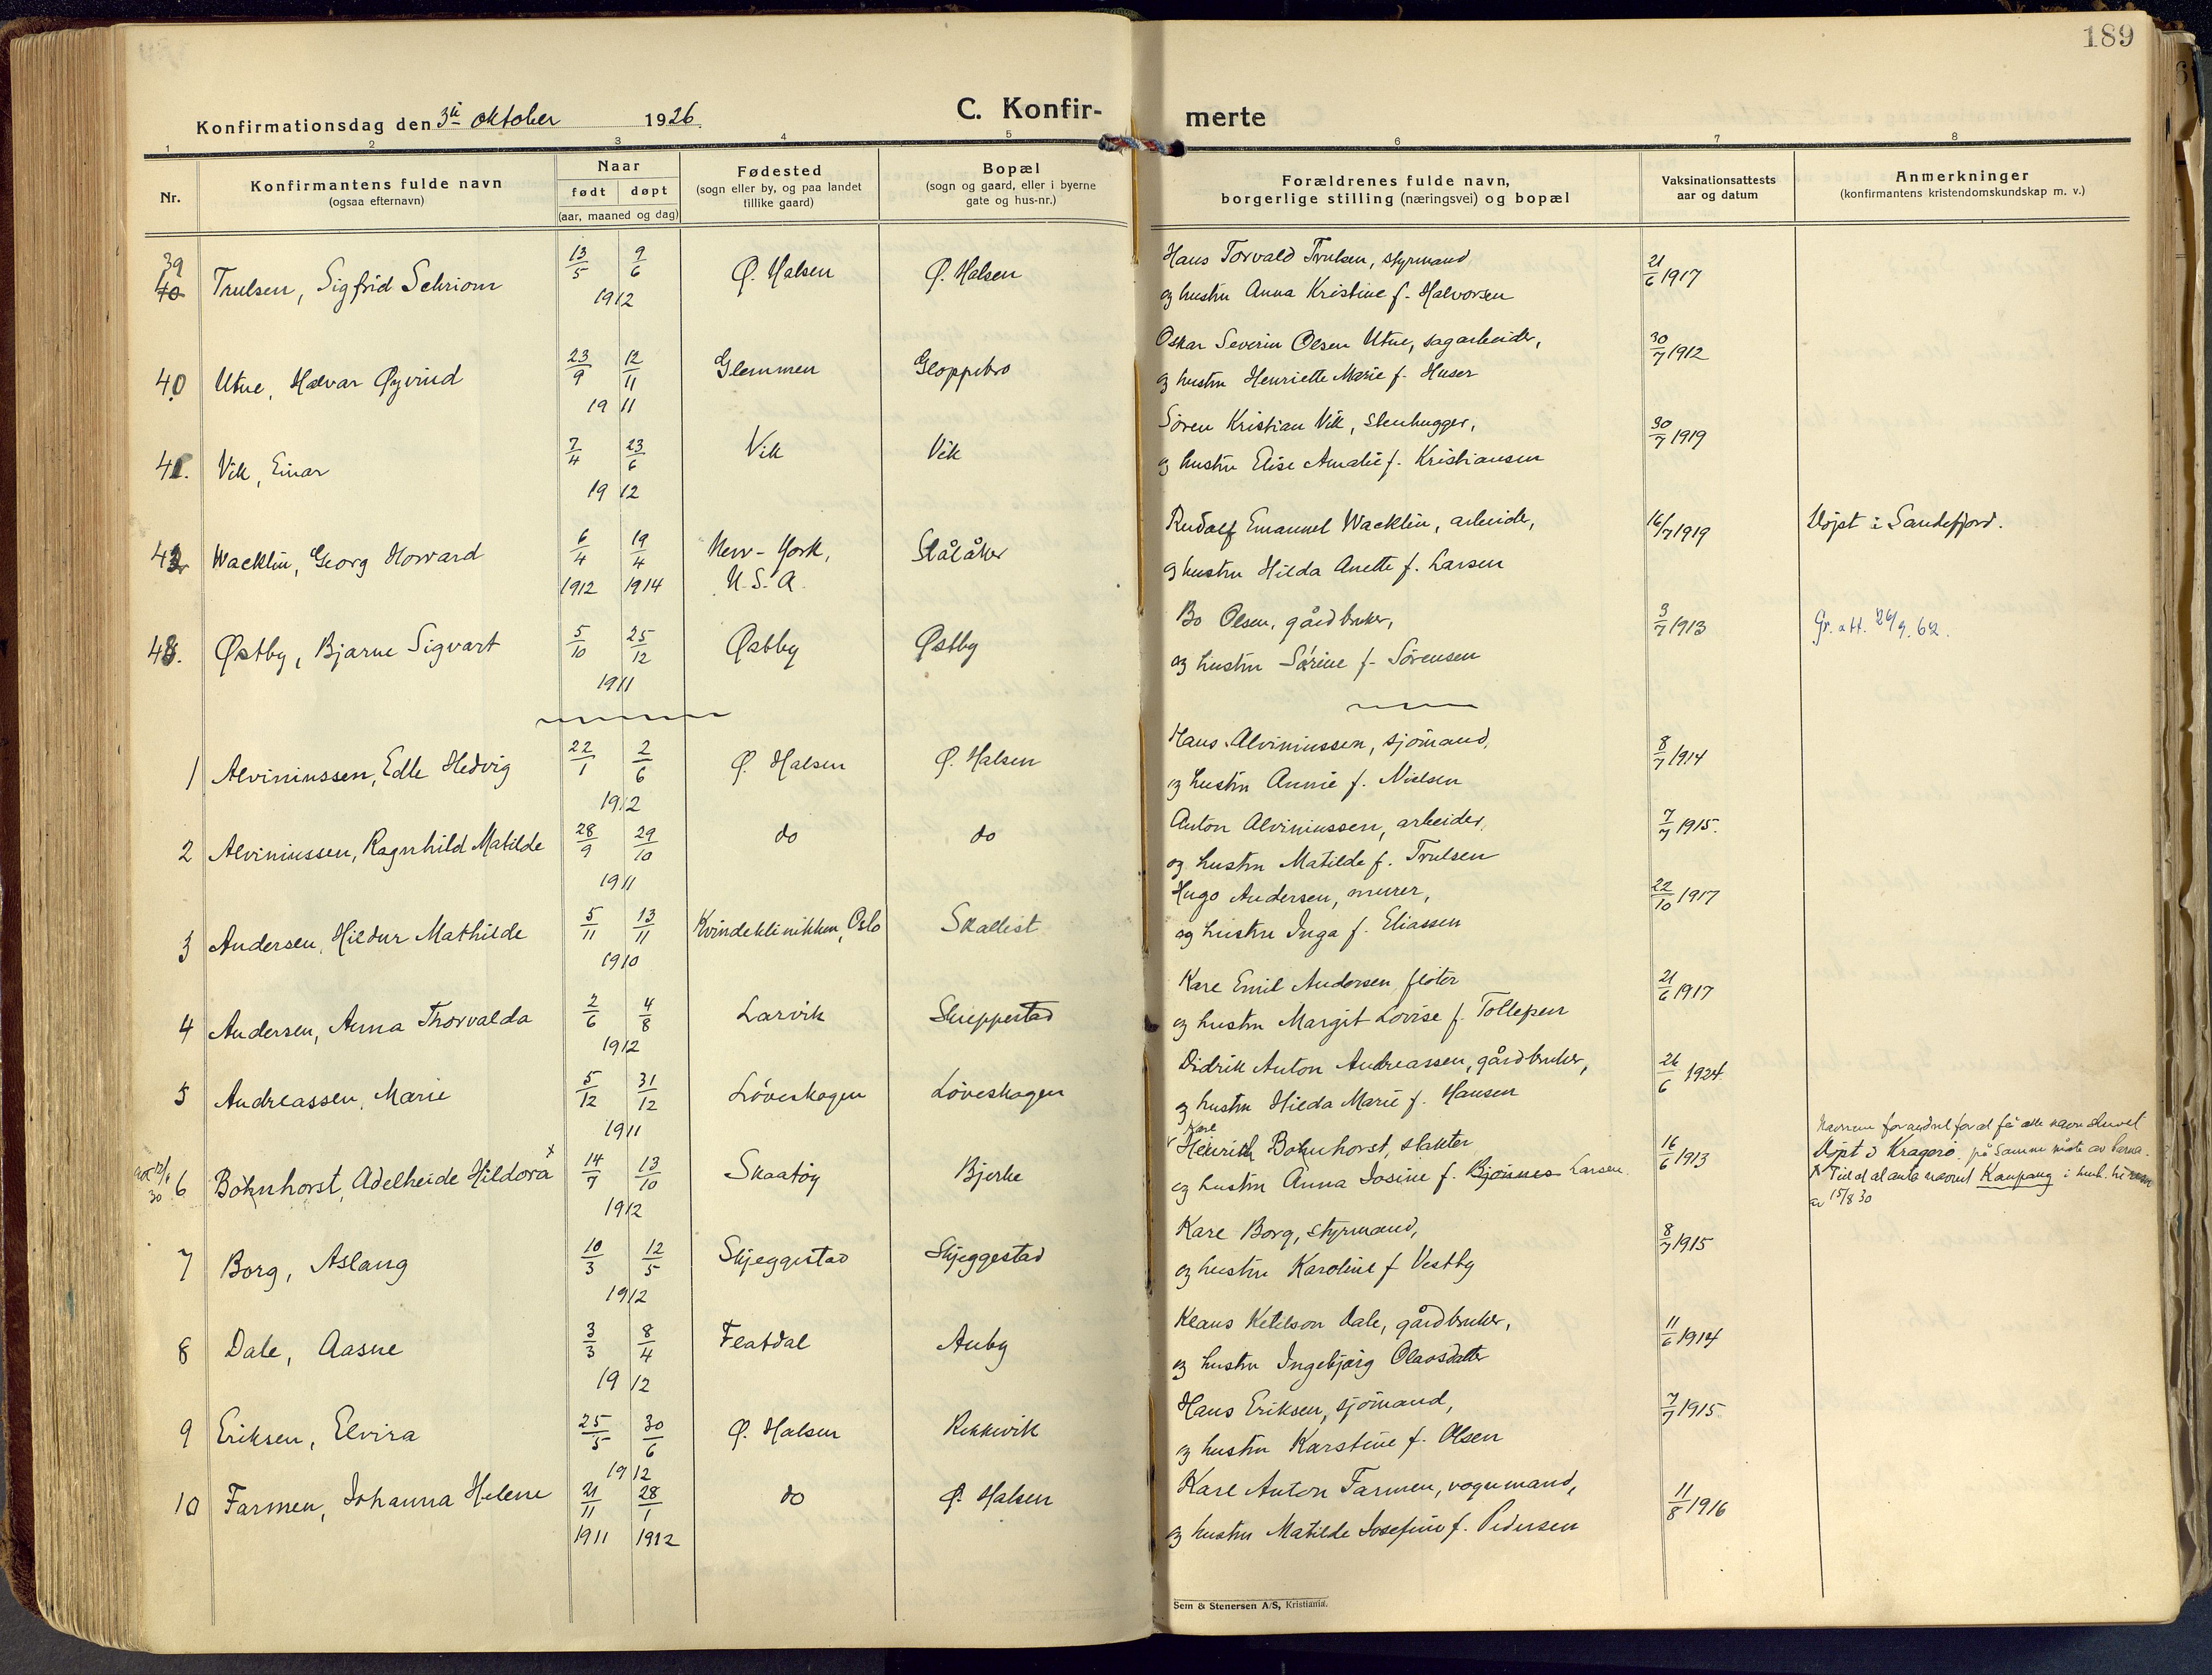 189
Konfirmationsdag den 3die oktober 1926.
C. Konfir- merte
1 2 3 4 5 6 7 8
Nr.
Konfirmantens fulde navn
(ogsaa efternavn)
Naar
født døpt
(aar, maaned og dag)
Fødested
(sogn eller by, og paa landet
tillike gaard)
Bopæl
(sogn og gaard, eller i byerne
gate og hus-nr.)
Forældrenes fulde navn,
borgerlige stilling (næringsvei) og bopæl
Vaksinationsattests
aar og datum
Anmerkninger
(konfirmantens kristendomskundskap m. v.)
39 40 Trulsen, Sigfrid Schriom 13/5 9/6 1912 Ø. Halsen Ø. Halsen
Hans Torvald Trulsen, styrmand
og hustru Anna Kristine f. Halvorsen
21/6 1917
40 Utne, Halvar Øyvind 23/9 12/11 1911 Glemmen Gloppebro
Oskar Severin Olsen Utne, sagarbeider,
og hustru Henriette Marie f. Huser
30/7 1912
41. Vik, Einar 7/4 23/6 1912 Vik Vik
Søren Kristian Vik, stenhugger,
og hustru Elise Amalie f. Kristiansen
30/7 1919
42 Wacklin, Georg Howard 6/4 1912 19/4 1914 New-York, U.S.A. Stålåker
Rudolf Emanuel Wacklin, arbeider,
og hustru Hilda Anette f. Larsen
16/7 1919
Døpt i Sandefjord.
43. Østby, Bjarne Sigvart 5/10 25/12 1911 Østby Østby
Bo Olsen, gårdbruker,
og hustru Sørine f. Sørensen
3/7 1913
Gr. att. 26/9. 62.
1 Alviniussen, Edle Hedvig 22/1 2/6 1912 Ø. Halsen Ø. Halsen
Hans Alviniussen, sjømand,
og hustru Annie f. Nielsen
8/7 1914
2 Alviniussen, Ragnhild Matilde 28/9 29/10 1911 do do
Anton Alviniussen, arbeider,
og hustru Matilde f. Trulsen
7/7 1915.
3 Andersen, Hildur Mathilde 5/11 13/11 1910 Kvindeklinikken, Oslo Skallist
Hugo Andersen, murer,
og hustru Inga f. Eliassen
22/10 1917
4 Andersen, Anna Thorvalda 2/6 4/8 1912 Larvik Skreppestad
Karl Emil Andersen, fløter
og hustru Margit Lovise f. Tollefsen
21/6 1917
5 Andreassen, Marie 5/12 31/12 1911 Løveskogen Løveskogen
Didrik Anton Andreassen, gårdbruker,
og hustru Hilda Marie f. Hansen
26/6 1924
6 Bohnhorst, Adelheide Hildora x 14/7 13/10 1912 Skaatøy Bjerke
Karl
Heinrich Bohnhorst, slakter
og hustru Anna Josine f. Bjønnes Larsen.
16/6 1913
Døpt i Kragerø. på samme måte av barna.
x Tillatt at anta navnet Kaupang
15/8 30
7 Borg, Aslaug 10/3 12/5 1912 Skjeggestad Skjeggestad
Karl Borg, styrmand,
og hustru Karoline f Vestby
8/7 1915
8 Dale, Aasne 3/3 8/4 1912 Flatdal Auby
Klaus Ketilson Dale, gårdbruker,
og hustru Ingebjørg Olavsdatter
11/6 1914
9 Eriksen, Elvira 25/5 30/6 1912 Ø. Halsen Rekkevik
Hans Eriksen, sjømand,
og hustru Karstine f. Olsen
7/7 1915
10 Farmen, Johanna Helene 21/11 1911 28/1 1912 do Ø. Halsen
Karl Anton Farmen, vognmand,
og hustru Matilde Josefine f. Pedersen
11/8 1916
Sem & Stenersen A/S, Kristiania.